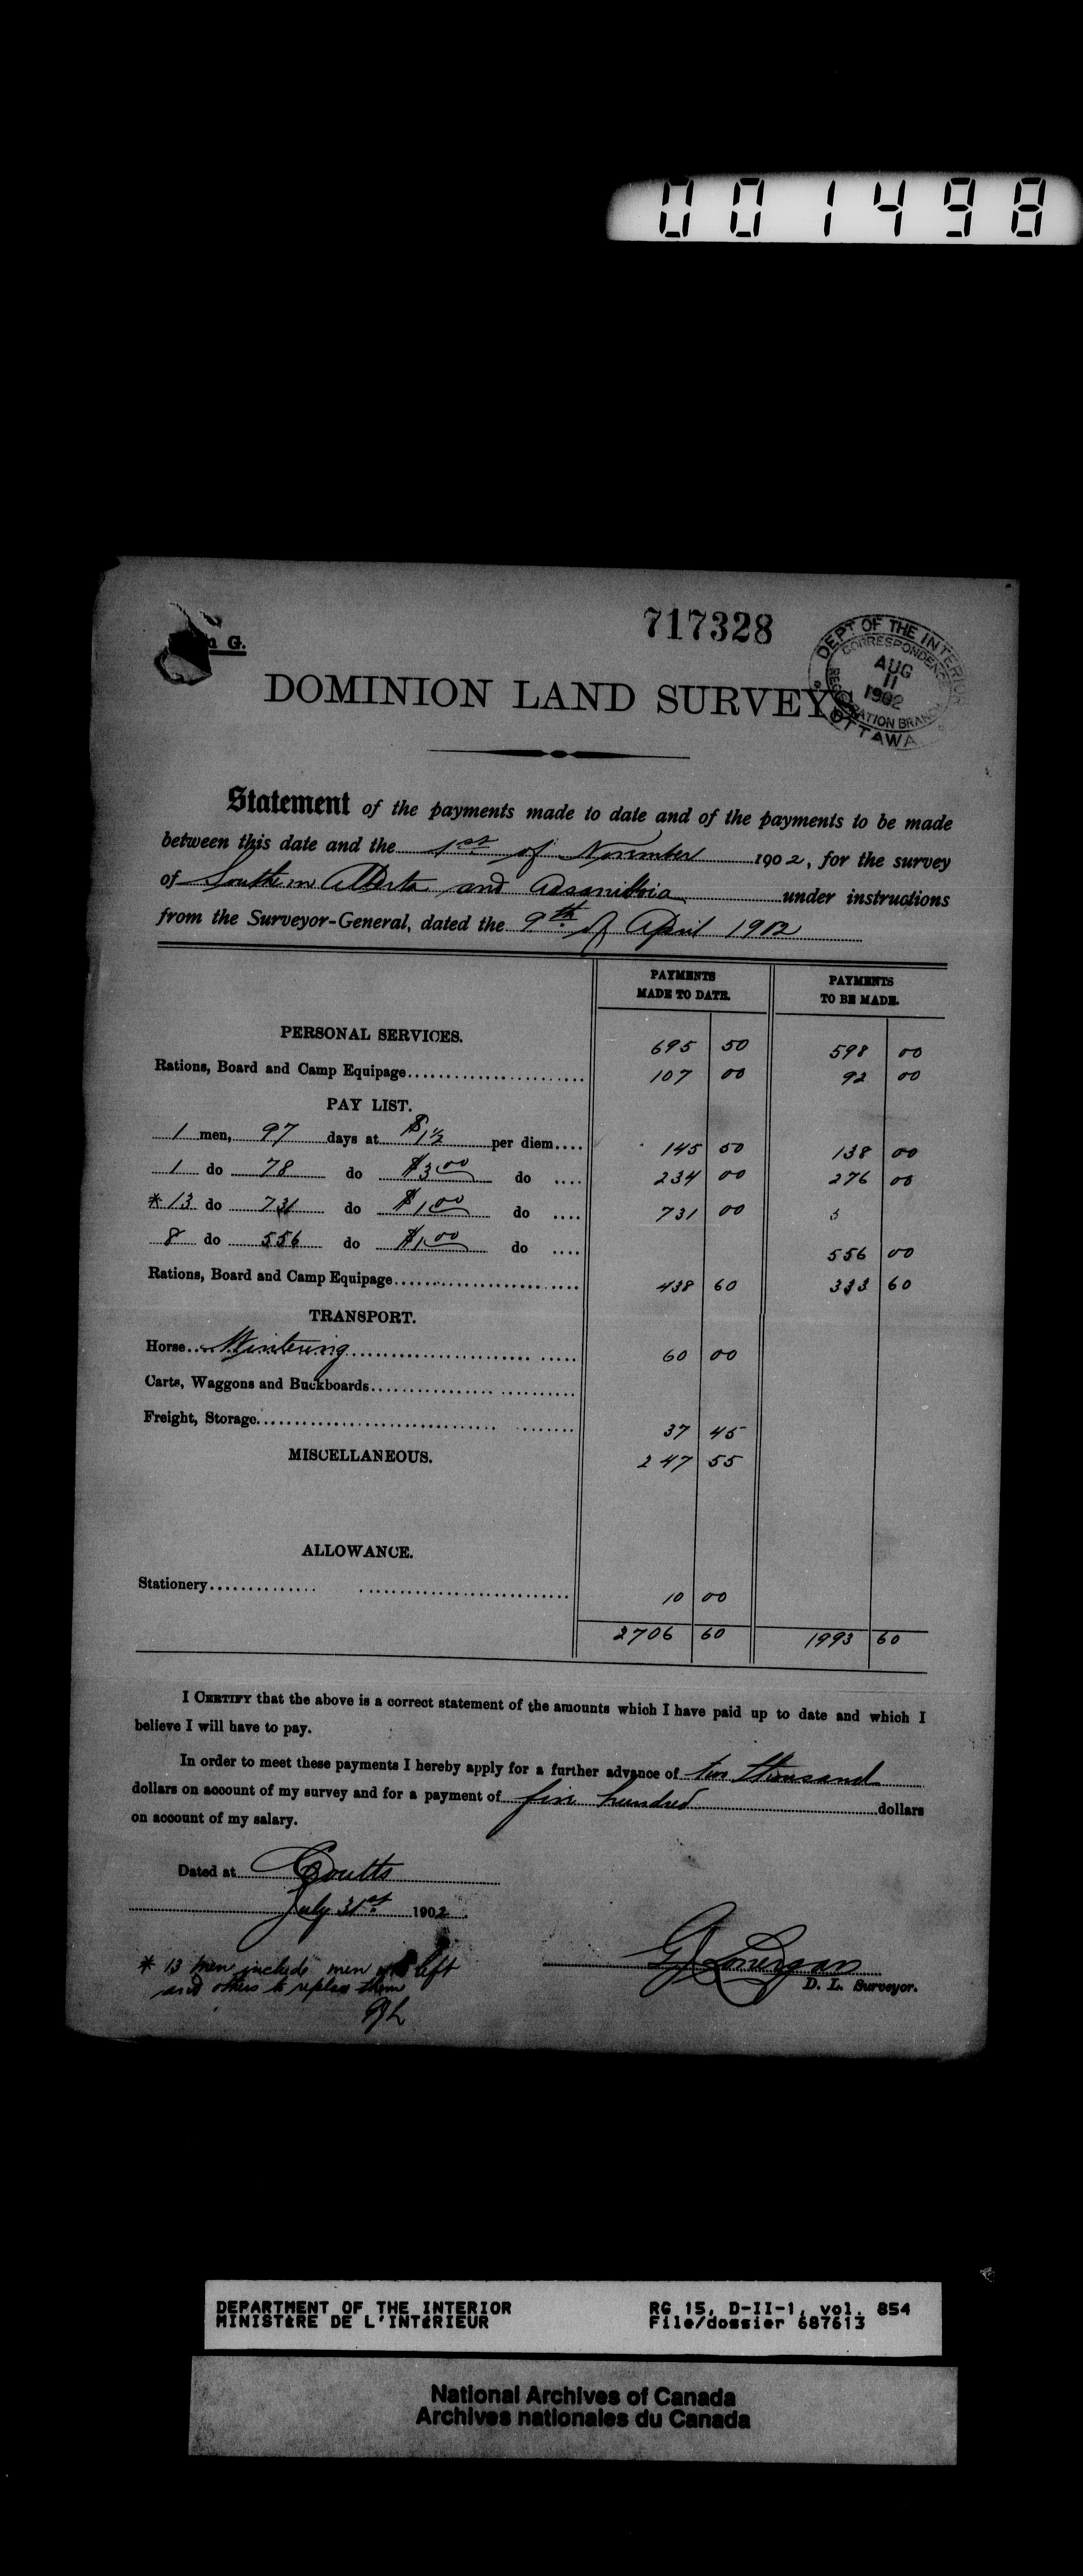 001498
717328
G.
DEPT OF THE INTERIOR
CORRESPONDENCE
AUG
11
1902
REGISTRATION BRANCH
OTTAWA
DOMINION LAND SURVEYS
Statement of the payments made to date and of the payments to be made
between this date and the 1st of November 1902, for the survey
of Southern Alberta and Assiniboia under instructions
from the Surveyor-General, dated the 9th of April 1902
PAYMENTS MADE TO DATE. PAYMENTS TO BE MADE.
PERSONAL SERVICES. 695 50 598 00
Rations, Board and Camp Equipage 107 00 92 00
PAY LIST.
1 men, 97 days at $1½ per diem 145 50 138 00
1 do 78 do $3.00 do 234 00 276 00
* 13 do 731 do $1.00 do 731 00
8 do 556 do $1.00 do 556 00
Rations, Board and Camp Equipage 438 60 333 60
TRANSPORT.
Horse Wintering 60 00
Carts, Waggons and Buckboards
Freight, Storage 37 45
MISCELLANEOUS. 247 55
ALLOWANCE.
Stationery 10 00
2706 60 1993 60
I CERTIFY that the above is a correct statement of the amounts which I have paid up to date and which I
believe I will have to pay.
In order to meet these payments I hereby apply for a further advance of two thousand
dollars on account of my survey and for a payment of five hundred dollars
on account of my salary.
Dated at Coutts
July 31st 1902
* 13 men include men who left
and others to replace them
GJL
GJ Lonergan
D. L. Surveyor.
DEPARTMENT OF THE INTERIOR RG 15, D-II-1, vol. 854
MINISTÈRE DE L'INTÉRIEUR File/dossier 687613
National Archives of Canada
Archives nationales du Canada